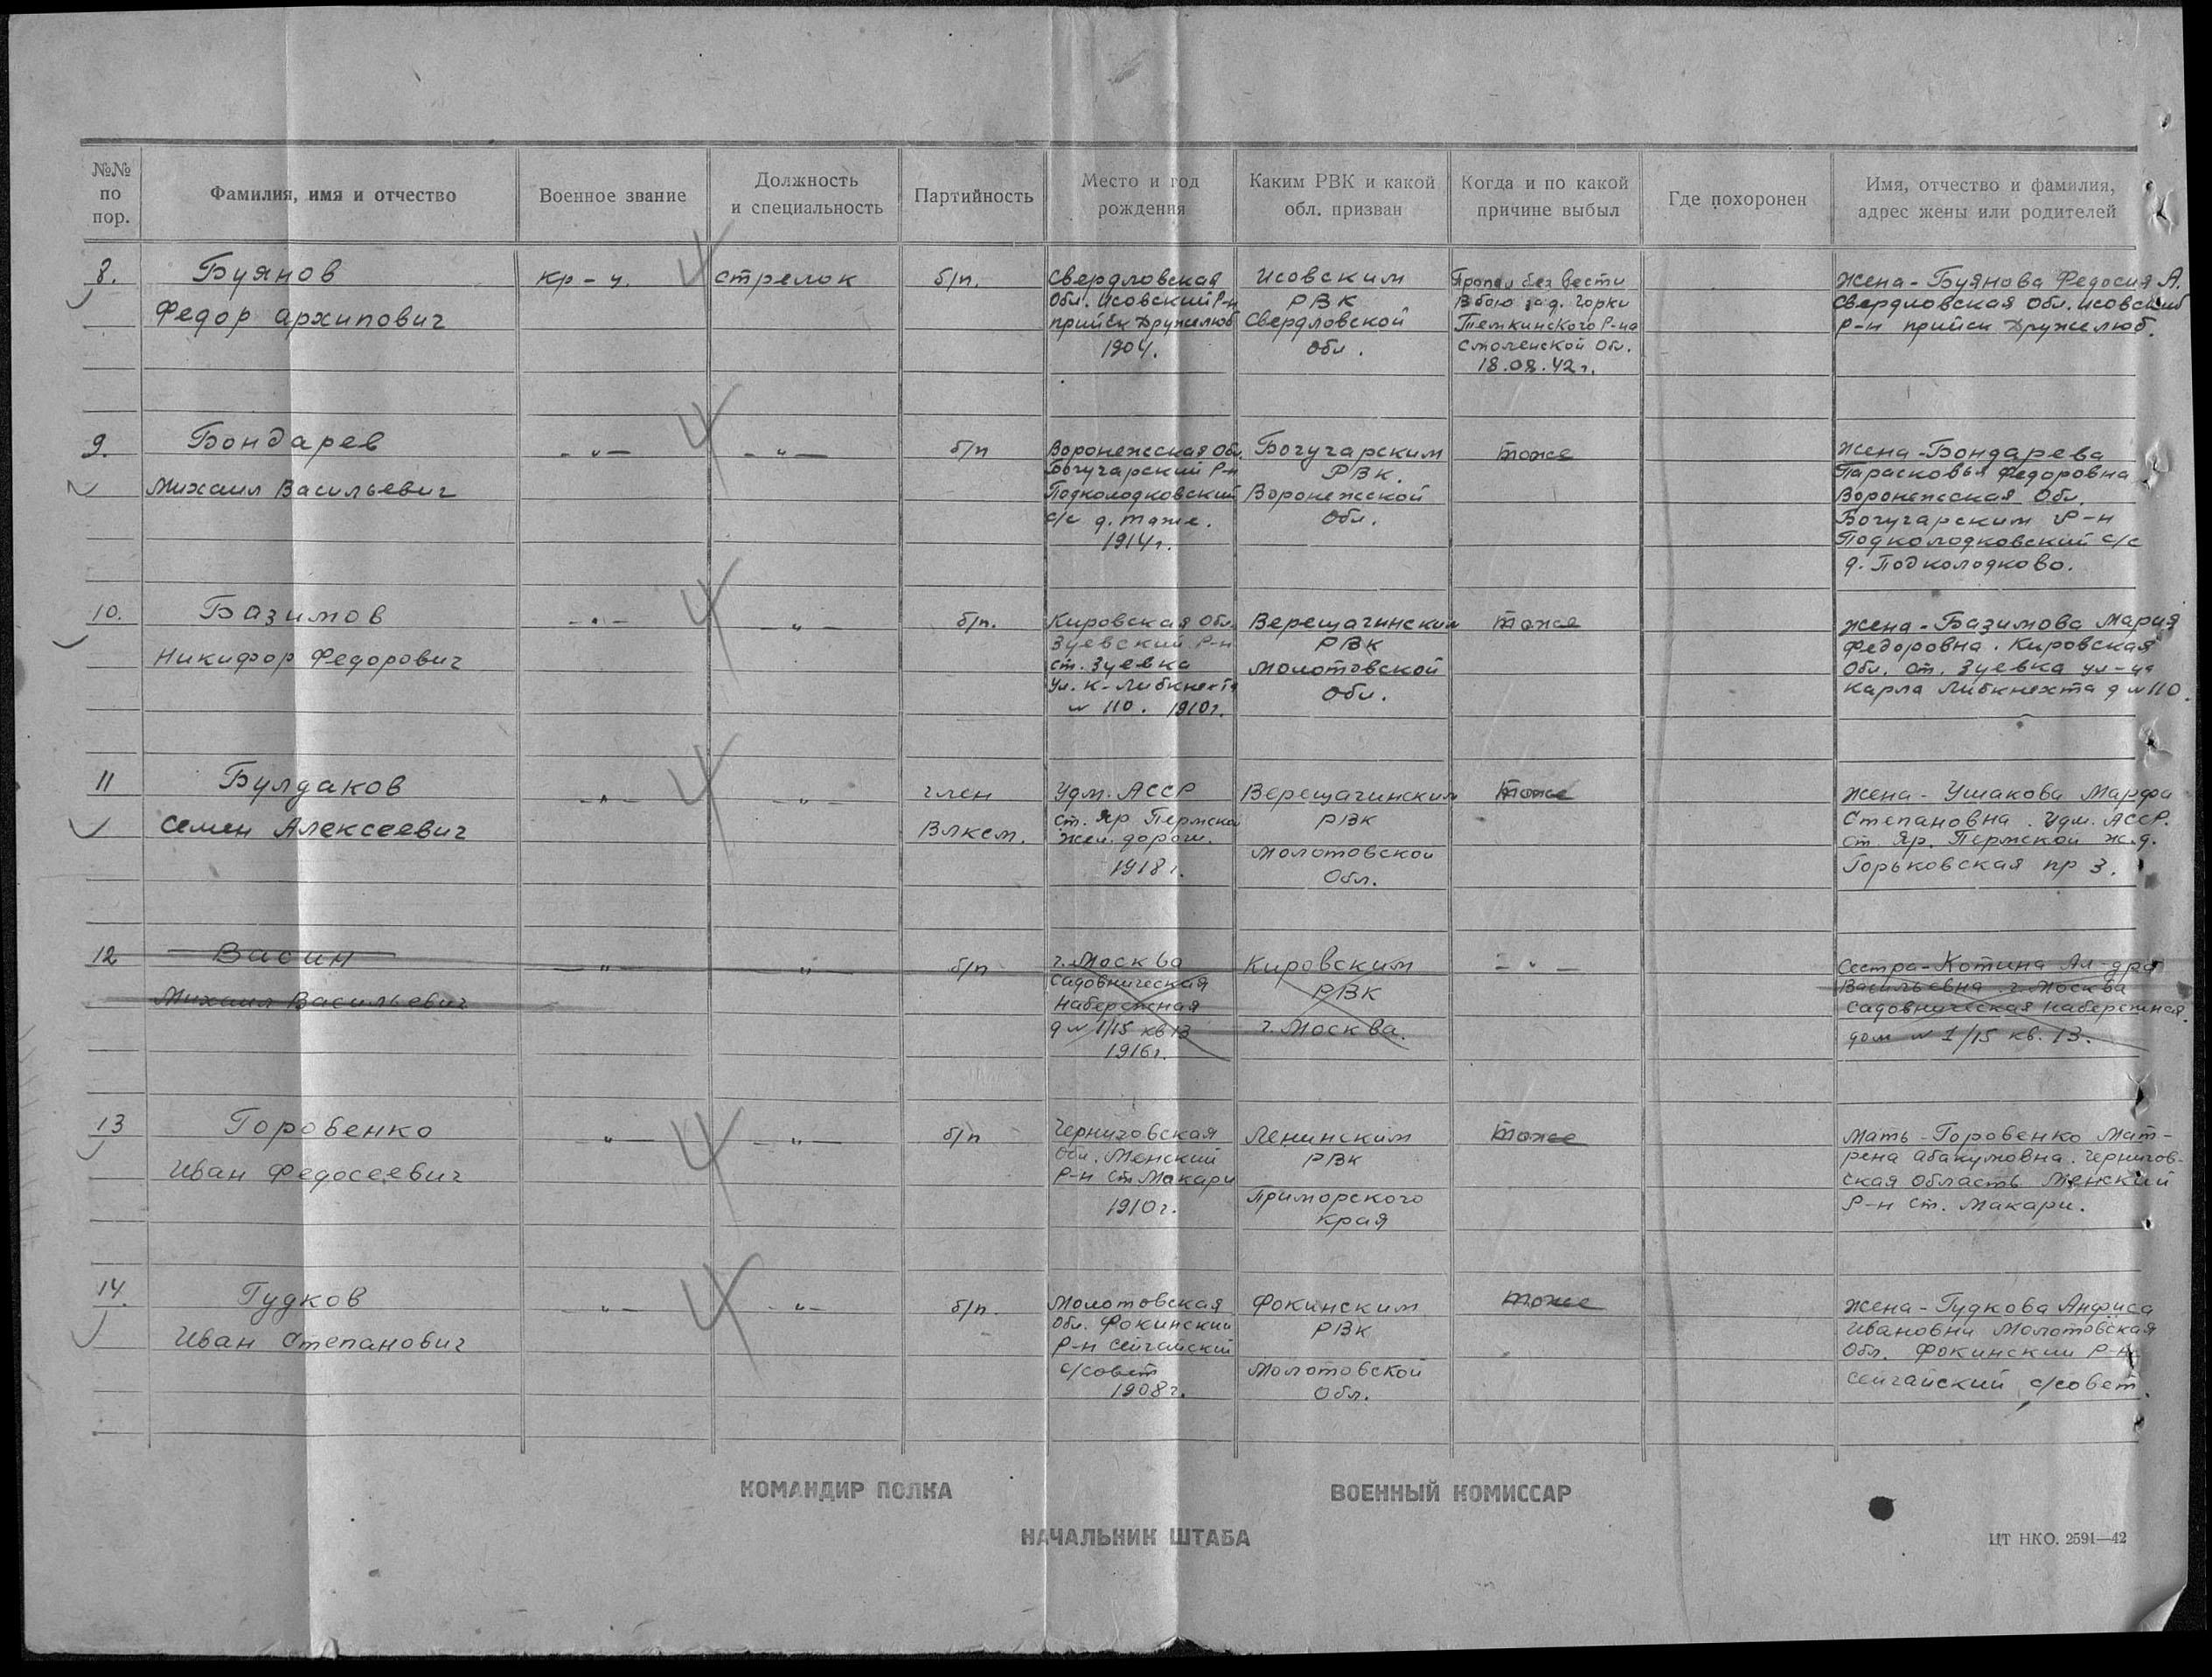 №№ по пор.
Фамилия, имя и отчество
Военное звание
Должность и специальность
Партийность
Место и год рождения
Каким РВК и какой обл. призван
Когда и по какой причине выбыл
Где похоронен
Имя, отчество и фамилия, адрес жены или родителей
8.
Буянов
Федор Архипович
кр-ц.
стрелок
б/п.
Свердловская
Обл. Исовский Р-н
прииск Дружелюб
1904.
Исовским
РВК
Свердловской
Обл.
Пропал без вести
В бою за д. Горки
Темкинского Р-на
Смоленской Обл.
18.08.42г.
Жена-Буянова Федосия А.
Свердловская Обл. Исовский
Р-н прииск Дружелюб.
9.
Бондарев
Михаил Васильевич
-"-
-"-
б/п
Воронежская Обл.
Богучарский Р-н
Подколодковский
с/с д. тоже.
1914г.
Богучарским
РВК.
Воронежской
Обл.
тоже
Жена-Бондарева
Парасковья Федоровна
Воронежская Обл.
Богучарским Р-н
Подколодковский с/с
д. Подколодково.
10.
Базимов
Никифор Федорович
-"-
-"-
б/п.
Кировская Обл.
Зуевский Р-н
ст. Зуевка
Ул. К-Либкнехта
№ 110. 1910г.
Верещагинским
РВК
Молотовской
Обл.
тоже
Жена-Базимова Мария
Федоровна. Кировская
Обл. ст. Зуевка ул-ца
Карла Либкнехта д №110.
11
Булдаков
Семен Алексеевич
-"-
-"-
член
Влксм.
Удм. АССР
ст. Яр Пермской
жел. дороги.
1918г.
Верещагинским
РВК
Молотовской
Обл.
тоже
Жена-Ушакова Марфа
Степановна. Удм. АССР.
ст. Яр. Пермской ж.д.
Горьковская пр 3.
12
Васин
Михаил Васильевич
-"-
-"-
б/п
г. Москва
Садовническая
Набережная
д № 1/15 кв 13
1916г.
Кировским
РВК
г. Москва.
-"-
Сестра-Котина Ал-дра
Васильевна г. Москва
Садовническая Набережная.
дом № 1/15 кв. 13.
13
Горовенко
Иван Федосеевич
-"-
-"-
б/п
Черниговская
Обл. Менский
Р-н ст Макари
1910г.
Ленинским
РВК
Приморского
Края
тоже
Мать-Горовенко Мат-
рена Абакумовна. Чернигов-
ская область Менский
Р-н ст. Макари.
14.
Гудков
Иван Степанович
-"-
-"-
б/п.
Молотовская
Обл. Фокинский
Р-н Сейгайский
с/совет
1908г.
Фокинским
РВК
Молотовской
Обл.
тоже
Жена-Гудкова Анфиса
Ивановна Молотовская
Обл. Фокинский Р-н
Сейгайский с/совет.
КОМАНДИР ПОЛКА
ВОЕННЫЙ КОМИССАР
НАЧАЛЬНИК ШТАБА
ЦТ НКО. 2591—42